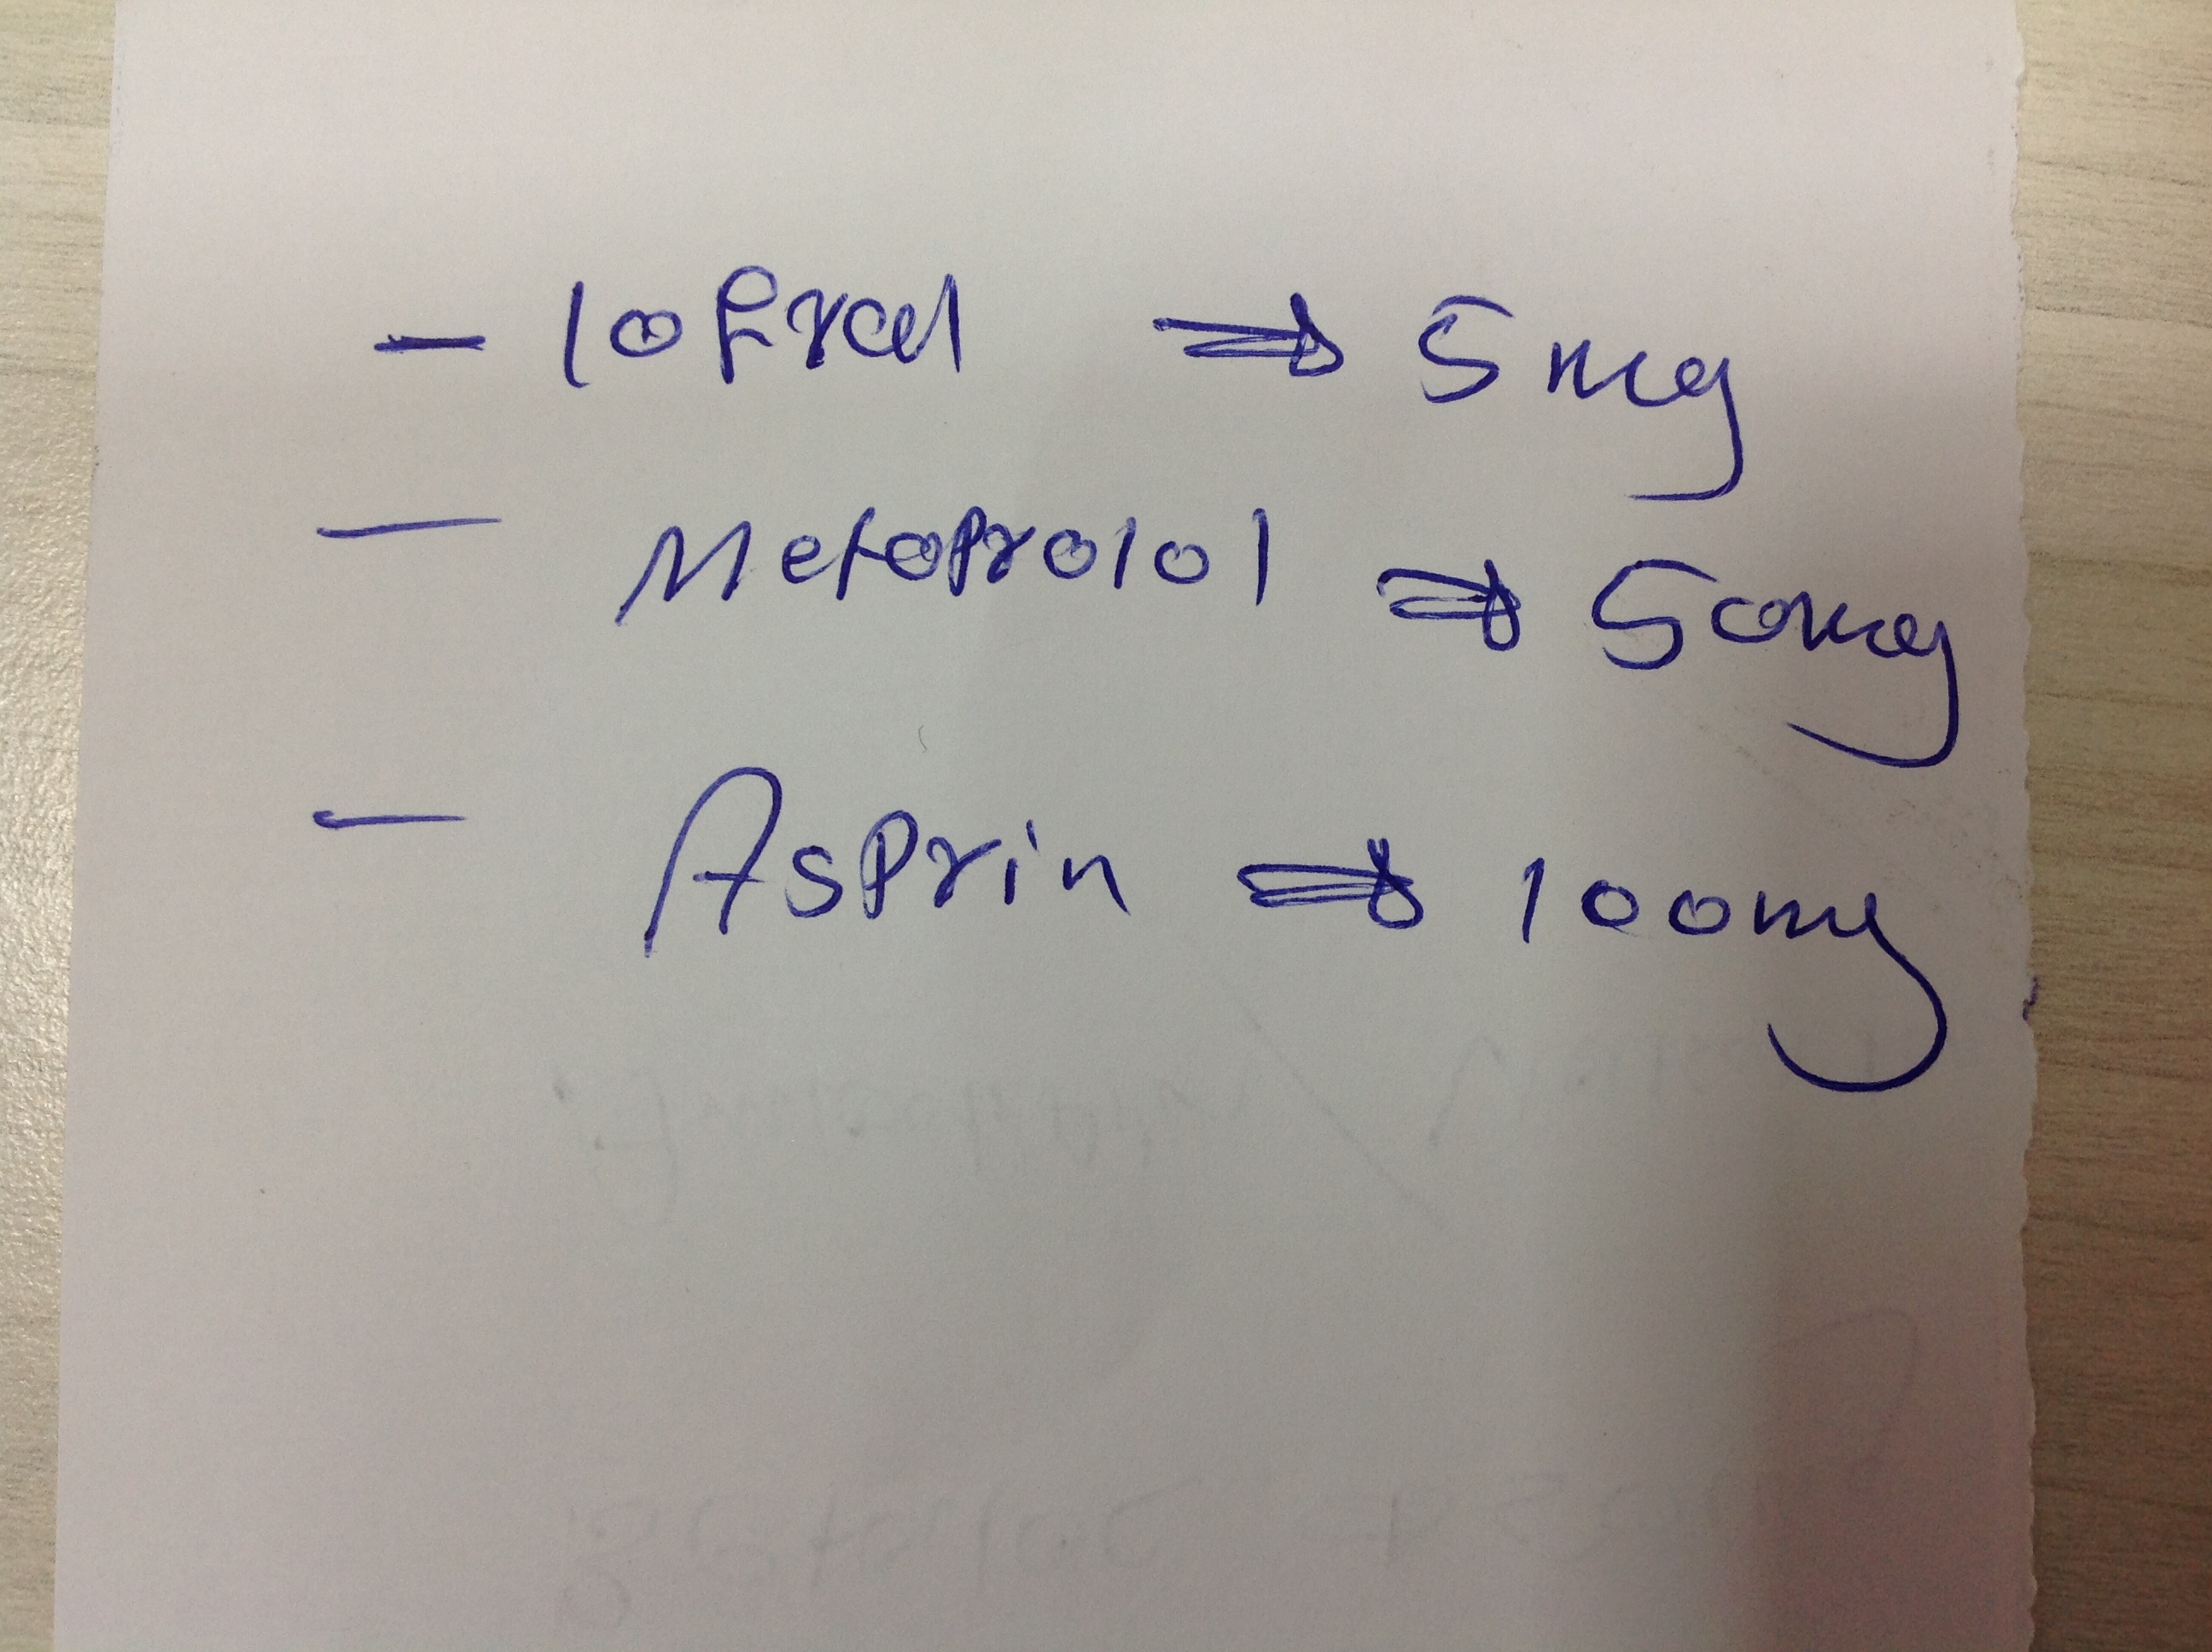 - lofral ⇒ 5mg
- Metoprolol ⇒ 50mg
- Asprin ⇒ 100mg